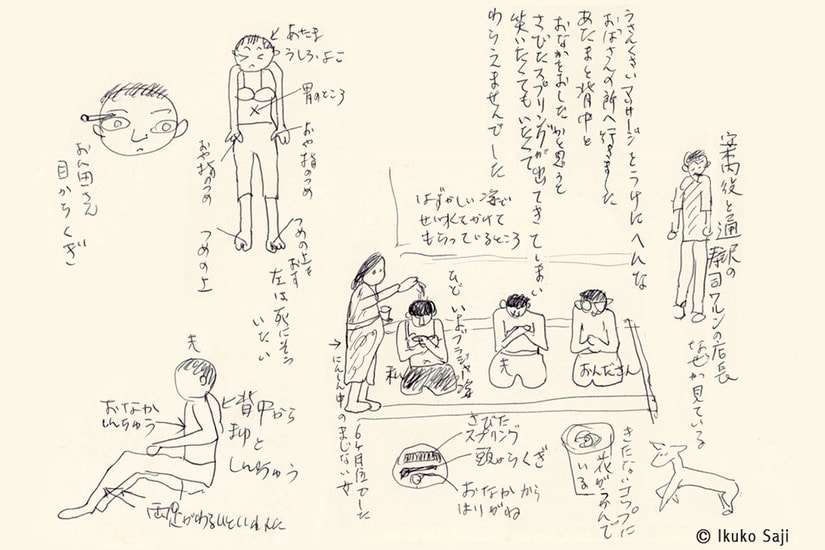 うさんくさいマッサージをうけに へんな
おばさんの所へ行きました
あたまと背中と
おなかをおしたかと思うと
さびたスプリングが出てきてしまい
笑いたくてもいたくて
わらえませんでした
あたま
うしろ、よこ
胃のところ
おや指のつめ
おや指のつめ
つめの上を
おす
左は死にそう
いたい
つめの上
おん田さん
目からくぎ
はずかしい姿で
せい水をかけて
もらっているところ
ひどいよブラジャー姿
私
夫
おんださん
案内役と通訳の
寿司ワルンの店長
なぜか見ている
→にんしん中のまじない女
6ヶ月位でした
さびた
スプリング
頭からくぎ
おなかから
はりがね
きたないコップに
花がうかんで
いる
夫
おなか
しんちゅう
背中から
しんちゅう
両足がわるいといわれた
© Ikuko Saji